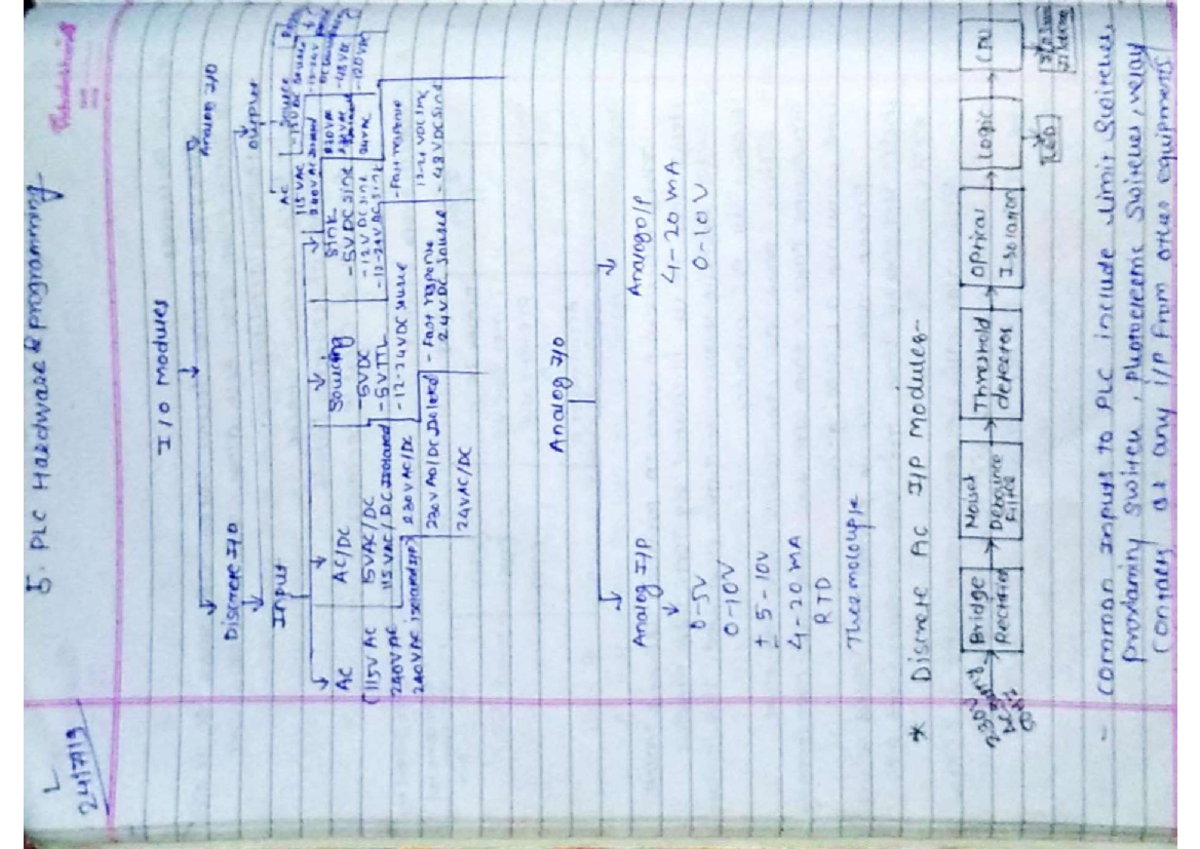 L
24/7/19
5. PLC Hardware & programming
I/O Modules
Discrete I/O
Analog I/O
Input
output
AC
AC/DC
Sourcing
Sink
AC
Source
115V AC
240V AC
240V AC isolated
15VAC/DC
115 VAC/DC Isolated
230V AC/DC
230V AC/DC Isolated
24VAC/DC
-5VDC
-5VTTL
-12-24VDC source
- Fast response
24VDC source
-5VDC sink
-12VDC sink
-12-24VDC, sink
- Fast response
12-24 VDC sink
- 48 VDC sink
115 VAC
-48 VDC
-120 VDC
Analog I/O
Analog I/P
Analog O/P
0-5V
4-20 mA
0-10V
0-10V
± 5-10v
4-20 mA
RTD
Thermolouple
* Discrete AC I/P Modules-
230V
Bridge Rectifier
Noise & Debounce Filter
Threshold detector
Optical Isolation
Logic
CPU
LED
- Common inputs to PLC include limit switches,
proximity switch, photoelectric switches, relay
contact or any i/p from other equipments